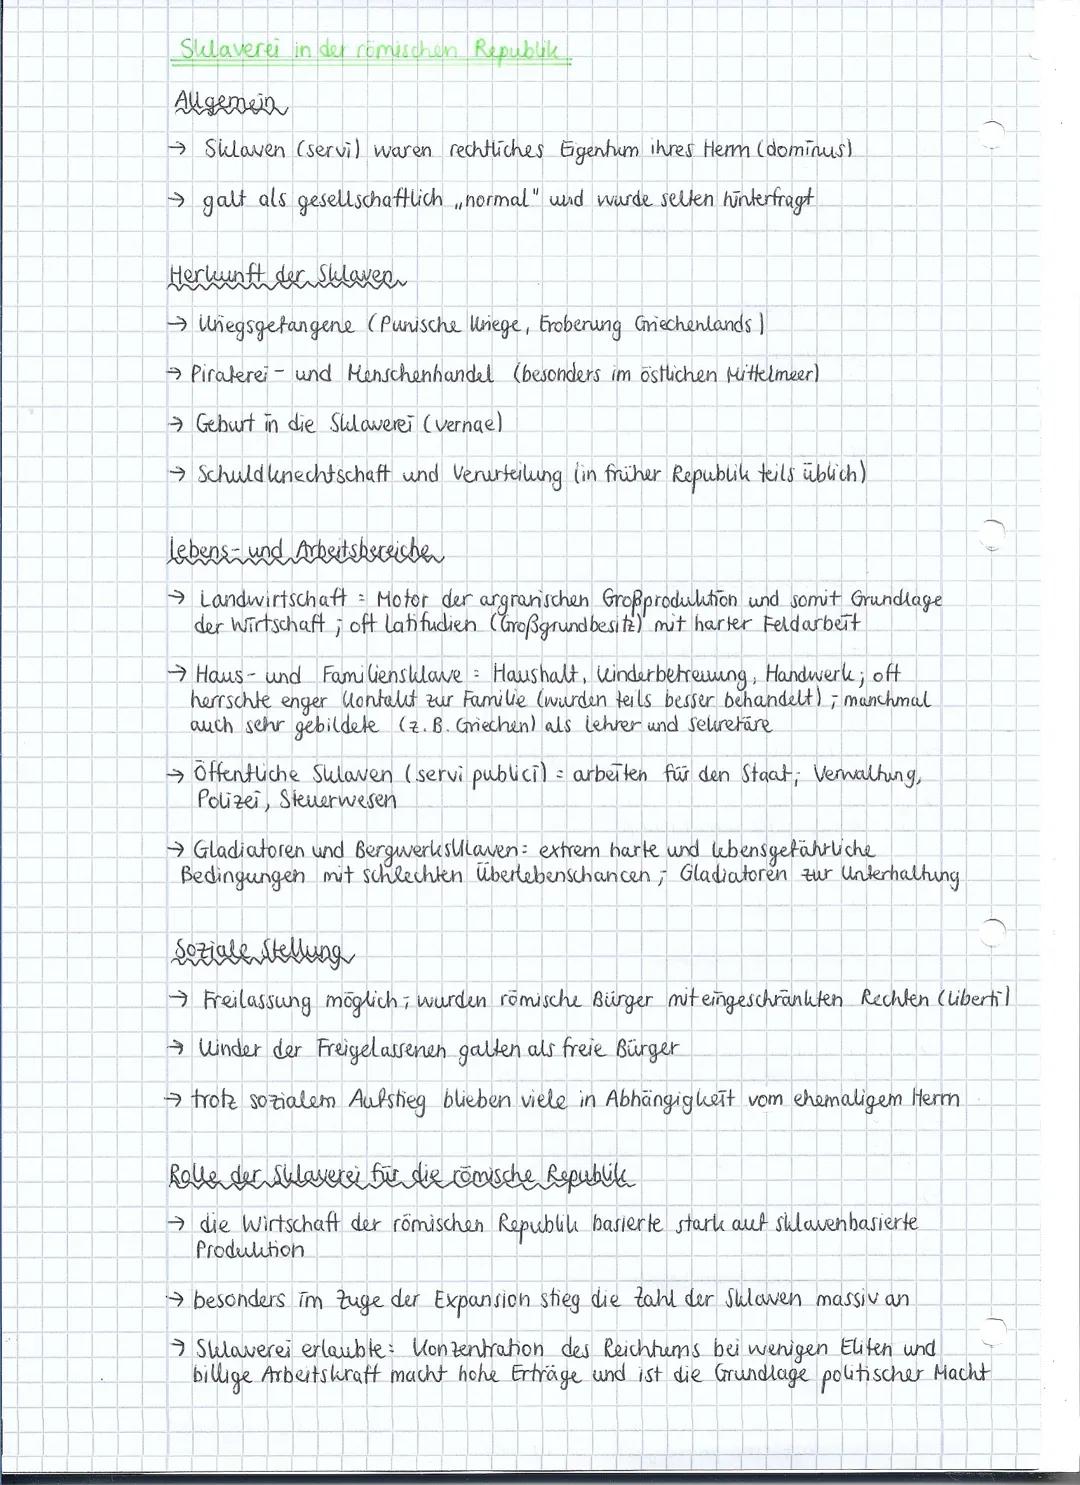 Sklaverei in der römischen Republik
Allgemein
→ Sklaven (servi) waren rechtliches Eigentum ihres Herrn (dominus)
→ galt als gesellschaftlich „normal" und wurde selten hinterfragt
Herkunft der Sklaven
→ Kriegsgefangene (Punische Kriege, Eroberung Griechenlands)
→ Piraterei- und Menschenhandel (besonders im östlichen Mittelmeer)
→ Geburt in die Sklaverei (vernae)
→ Schuldknechtschaft und Verurteilung (in früher Republik teils üblich)
Lebens- und Arbeitsbereiche
→ Landwirtschaft: Motor der argrarischen Großproduktion und somit Grundlage
der Wirtschaft; oft Latifudien (Großgrundbesitz) mit harter Feldarbeit
→ Haus- und Familiensklave: Haushalt, Kinderbetreuung, Handwerk; oft
herrschte enger Kontakt zur Familie (wurden teils besser behandelt); manchmal
auch sehr gebildete (z.B. Griechen) als Lehrer und Sekretäre
→ Öffentliche Sklaven (servi publici): arbeiten für den Staat; Verwaltung,
Polizei, Steuerwesen
→ Gladiatoren und Bergwerksklaven: extrem harte und lebensgefährliche
Bedingungen mit schlechten Überlebenschancen; Gladiatoren zur Unterhaltung
Soziale Stellung
→ Freilassung möglich; wurden römische Bürger mit eingeschränkten Rechten (liberti)
→ Kinder der Freigelassenen galten als freie Bürger
→ trotz sozialem Aufstieg blieben viele in Abhängigkeit vom ehemaligem Herrn
Rolle der Sklaverei für die römische Republik
→ die Wirtschaft der römischen Republik basierte stark auf sklavenbasierte
Produktion
→ besonders im Zuge der Expansion stieg die Zahl der Sklaven massiv an
→ Sklaverei erlaubte: Konzentration des Reichtums bei wenigen Eliten und
billige Arbeitskraft macht hohe Erträge und ist die Grundlage politischer Macht